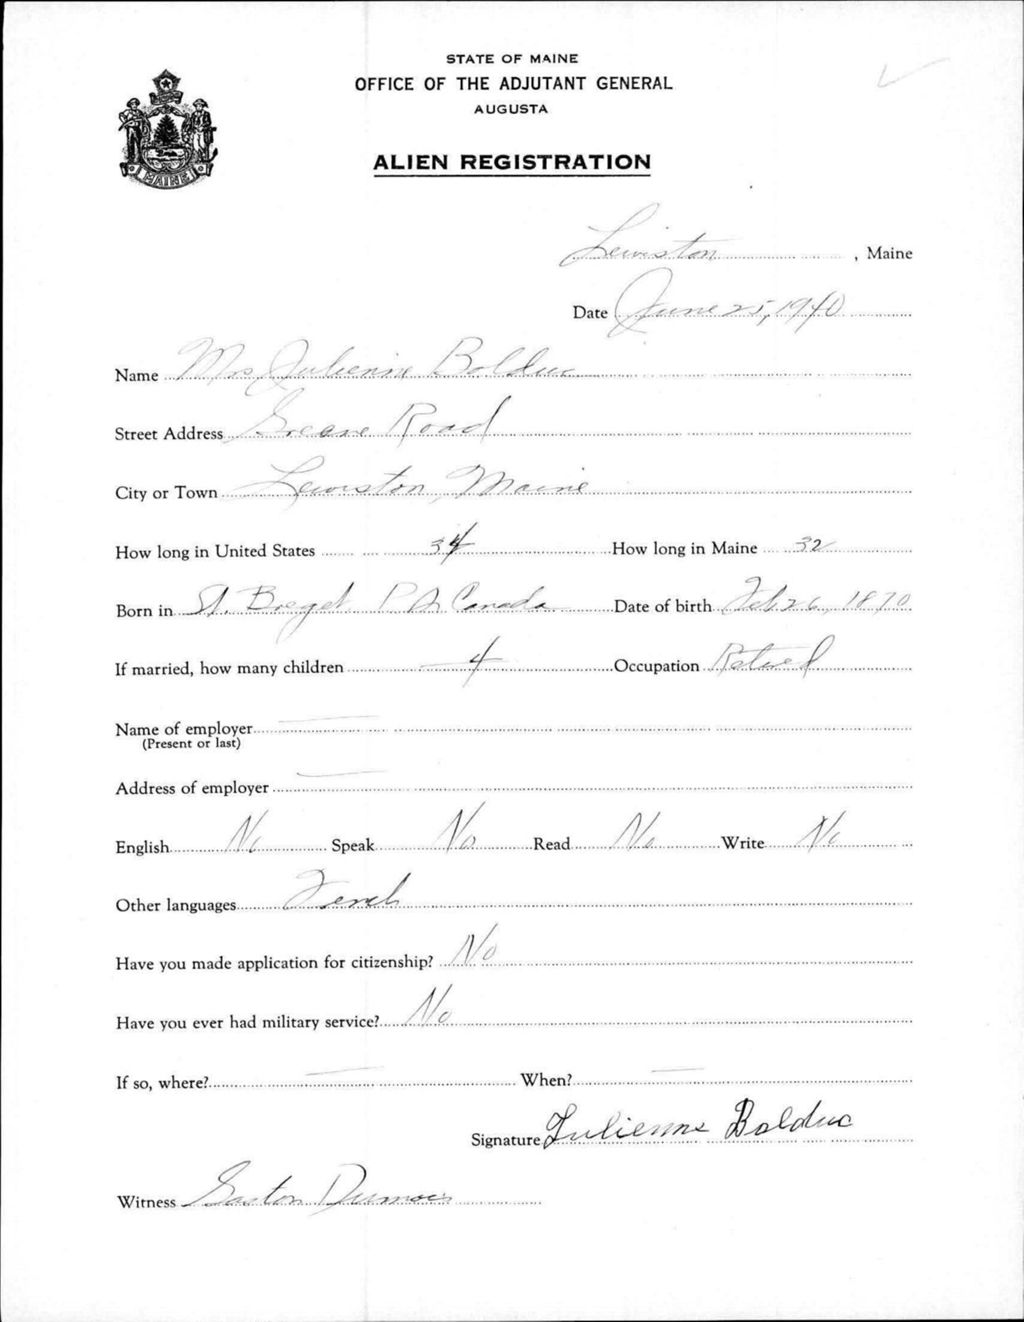 STATE OF MAINE
OFFICE OF THE ADJUTANT GENERAL
AUGUSTA
ALIEN REGISTRATION
MAINE
Lewiston, Maine
Date June 25, 1940
Name Mrs Julienne Bolduc
Street Address Greene Road
City or Town Lewiston, Maine
How long in United States 34 How long in Maine 32
Born in St. P Q Canada Date of birth Feb 26, 1870
If married, how many children 4 Occupation Retired
Name of employer
(Present or last)
Address of employer
English No Speak No Read No Write No
Other languages French
Have you made application for citizenship? No
Have you ever had military service? No
If so, where? When?
Signature Julienne Bolduc
Witness Gaston Dumais